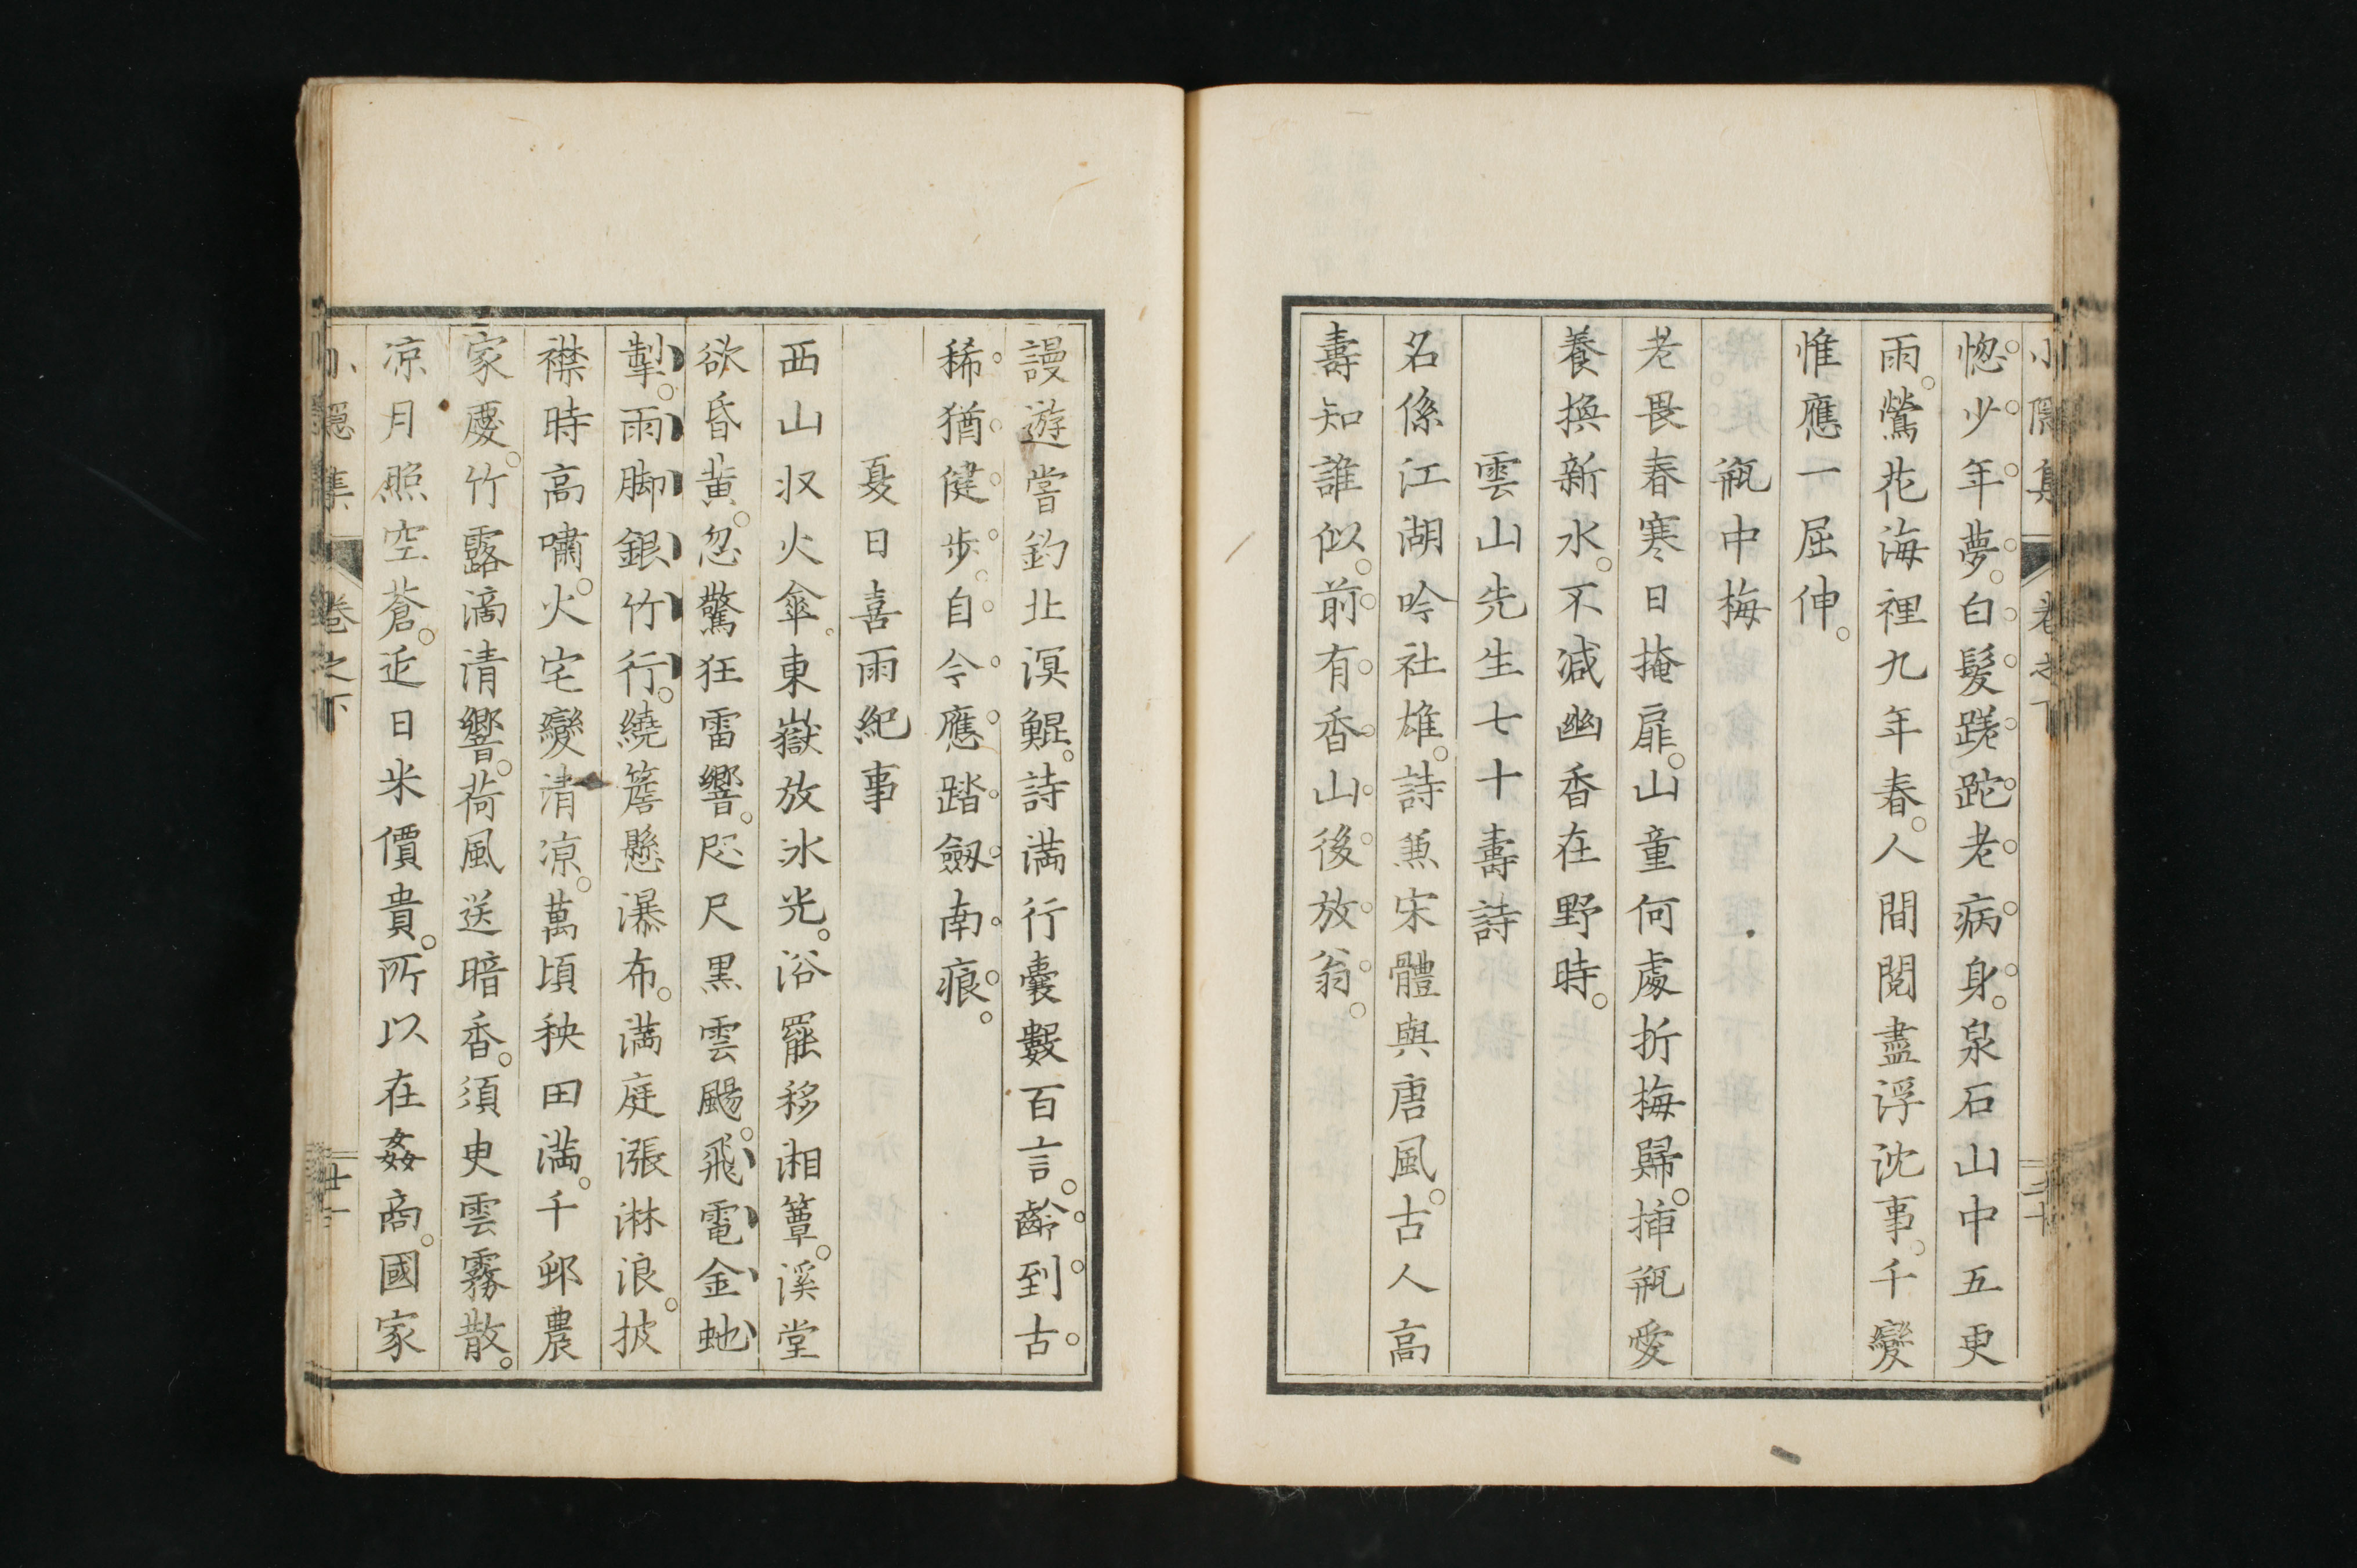 小隱集 卷之下 二十
惚少年夢。白髮蹉跎老病身。泉石山中五更
雨。鶯花海裡九年春。人間閱盡浮沈事。千變
惟應一屈伸。
瓶中梅
老畏春寒日掩扉。山童何處折梅歸。揷瓶愛
養換新水。不減幽香在野時。
雲山先生七十壽詩
名係江湖吟社雄。詩兼宋體與唐風。古人高
壽知誰似。前有香山後放翁。
謾遊嘗釣北溟鯤。詩滿行囊數百言。齡到古
稀猶健步。自今應踏劔南痕。
夏日喜雨紀事
西山収火傘。東嶽放氷光。浴罷移湘簟。溪堂
欲昏黃。忽驚狂雷響。咫尺黑雲颺。飛電金虵
掣。雨脚銀竹行。繞簷懸瀑布。滿庭漲淋浪。披
襟時高嘯。火宅變清凉。萬頃秧田滿。千邨農
家慶。竹露滴清響。荷風送暗香。須臾雲霧散。
凉月照空蒼。近日米價貴。所以在姦商。國家
小隱集 卷之下 廿一